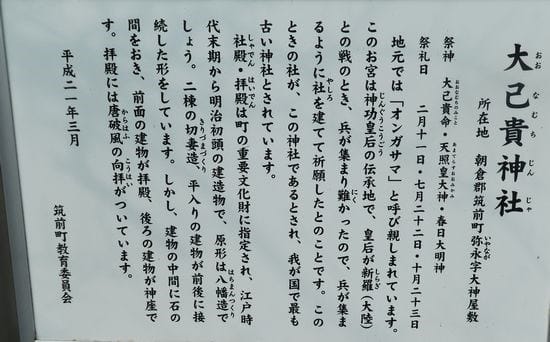 大己貴神社
おお なむち じん じゃ
所在地 朝倉郡筑前町弥永字大神屋敷
いやなが
祭神 大己貴命・天照皇大神・春日大明神
おおなむちのみこと あまてらすおおみかみ
祭礼日 二月十一日・七月二十二日・十月二十三日
地元では「オンガサマ」と呼び親しまれています。
このお宮は神功皇后の伝承地で、皇后が新羅(大陸)
じんぐうこうごう しらぎ
との戦のとき、兵が集まり難かったので、兵が集ま
にく
るように社を建てて祈願したとのことです。この
やしろ
ときの社が、この神社であるとされ、我が国で最も
古い神社とされています。
社殿・拝殿は町の重要文化財に指定され、江戸時
しゃでん はいでん
代末期から明治初頭の建造物で、原形は八幡造で
はちまんづくり
しょう。二棟の切妻造、平入りの建物が前後に接
きりづまづくり
続した形をしています。しかし、建物の中間に石の
間をおき、前面の建物が拝殿、後ろの建物が神座で
す。拝殿には唐破風の向拝がついています。
からはふ こうはい
平成二一年三月
筑前町教育委員会